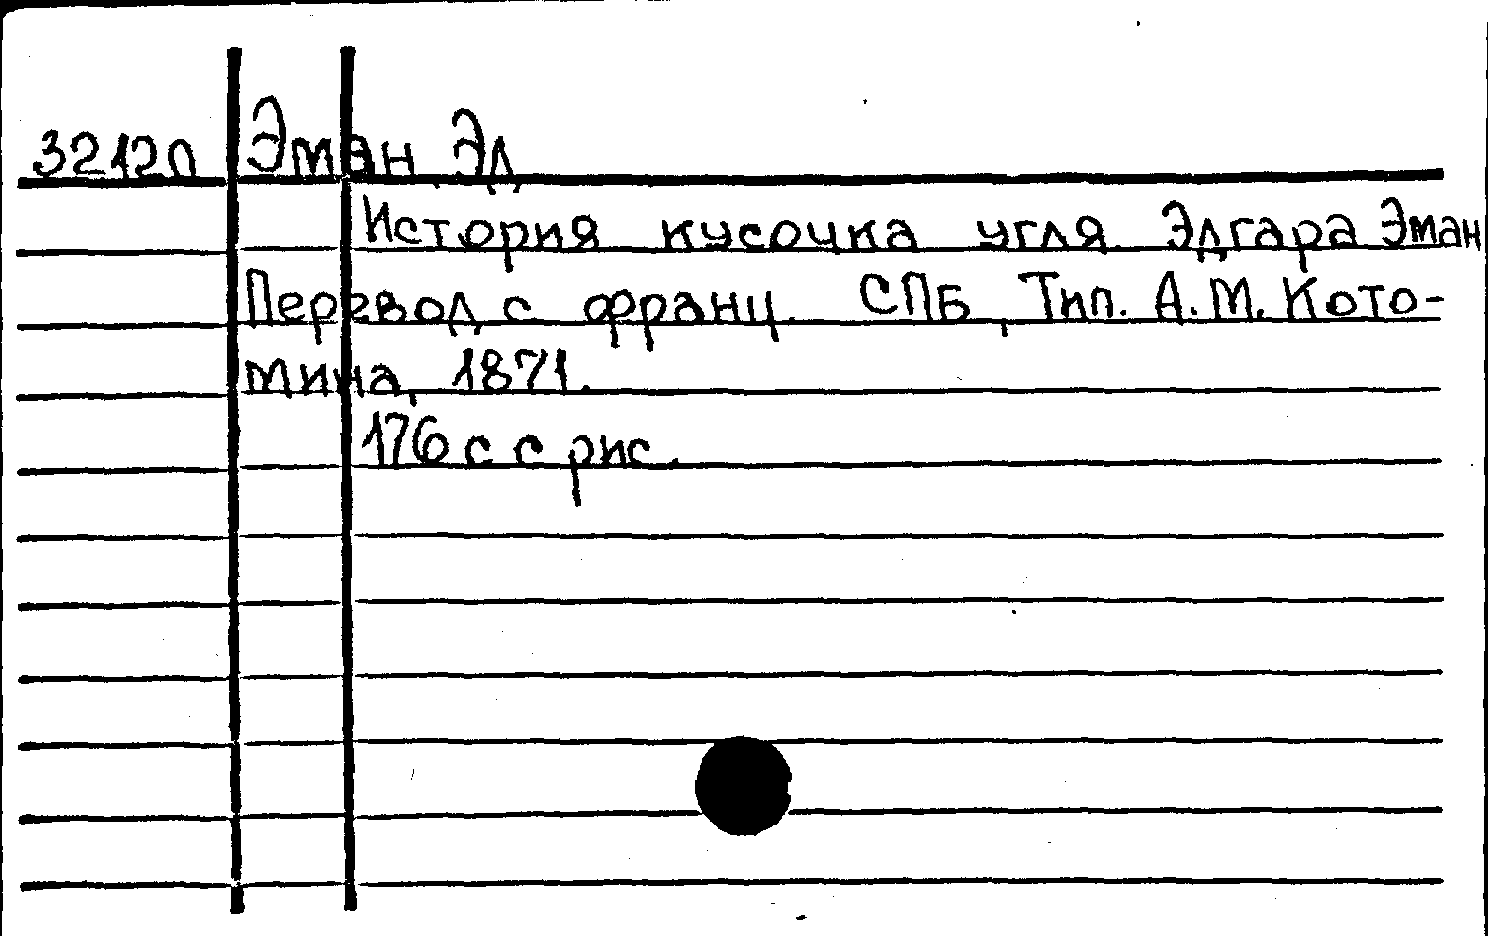 32120 Эман, Эд,
История кусочка угля. Эдгара Эман
Перевод с франц. СПБ, Тип. А. М. Кото-
мина, 1871.
176 с с рис.